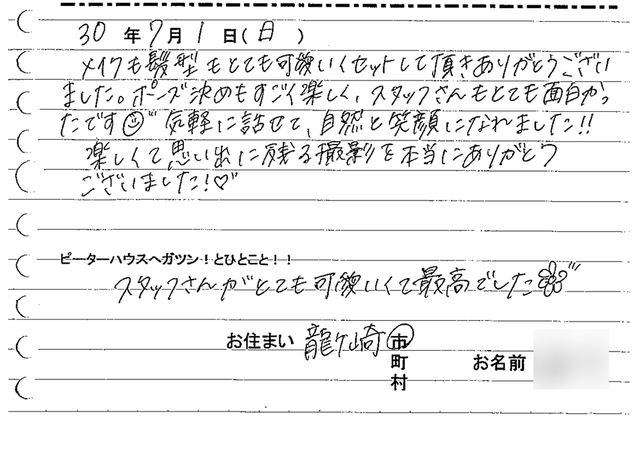 30年7月1日(日)
メイクも髪型もとても可愛いくセットして頂きありがとうござい
ました。ポーズ決めもすごく楽しく、スタッフさんもとても面白かっ
たです☺ 気軽に話せて、自然と笑顔になれました!!
楽しくて思い出に残る撮影を本当にありがとう
ございました!♡
ピーターハウスへガツン!とひとこと!!
スタッフさんがとても可愛いくて最高でした
お住まい 龍ヶ崎 市
町
村
お名前